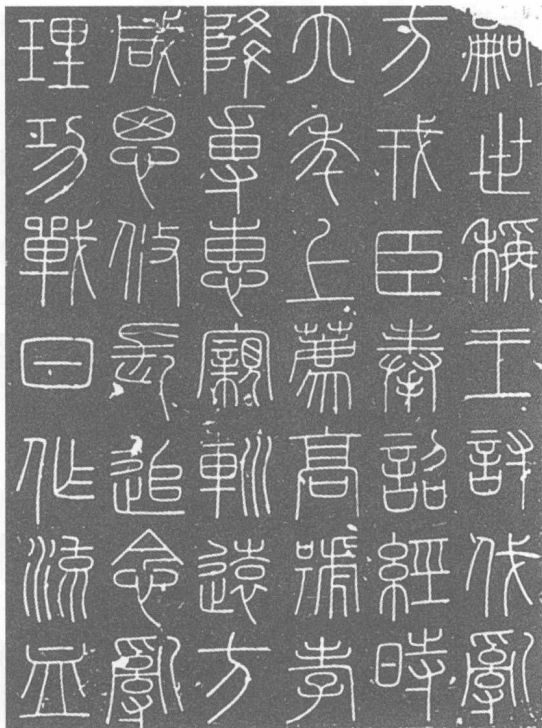 嗣世稱王討伐亂
方戎臣奉詔經時
六年上薦高號孝
降專惠親巡遠方
咸思攸長追念亂
理功戰日作流血